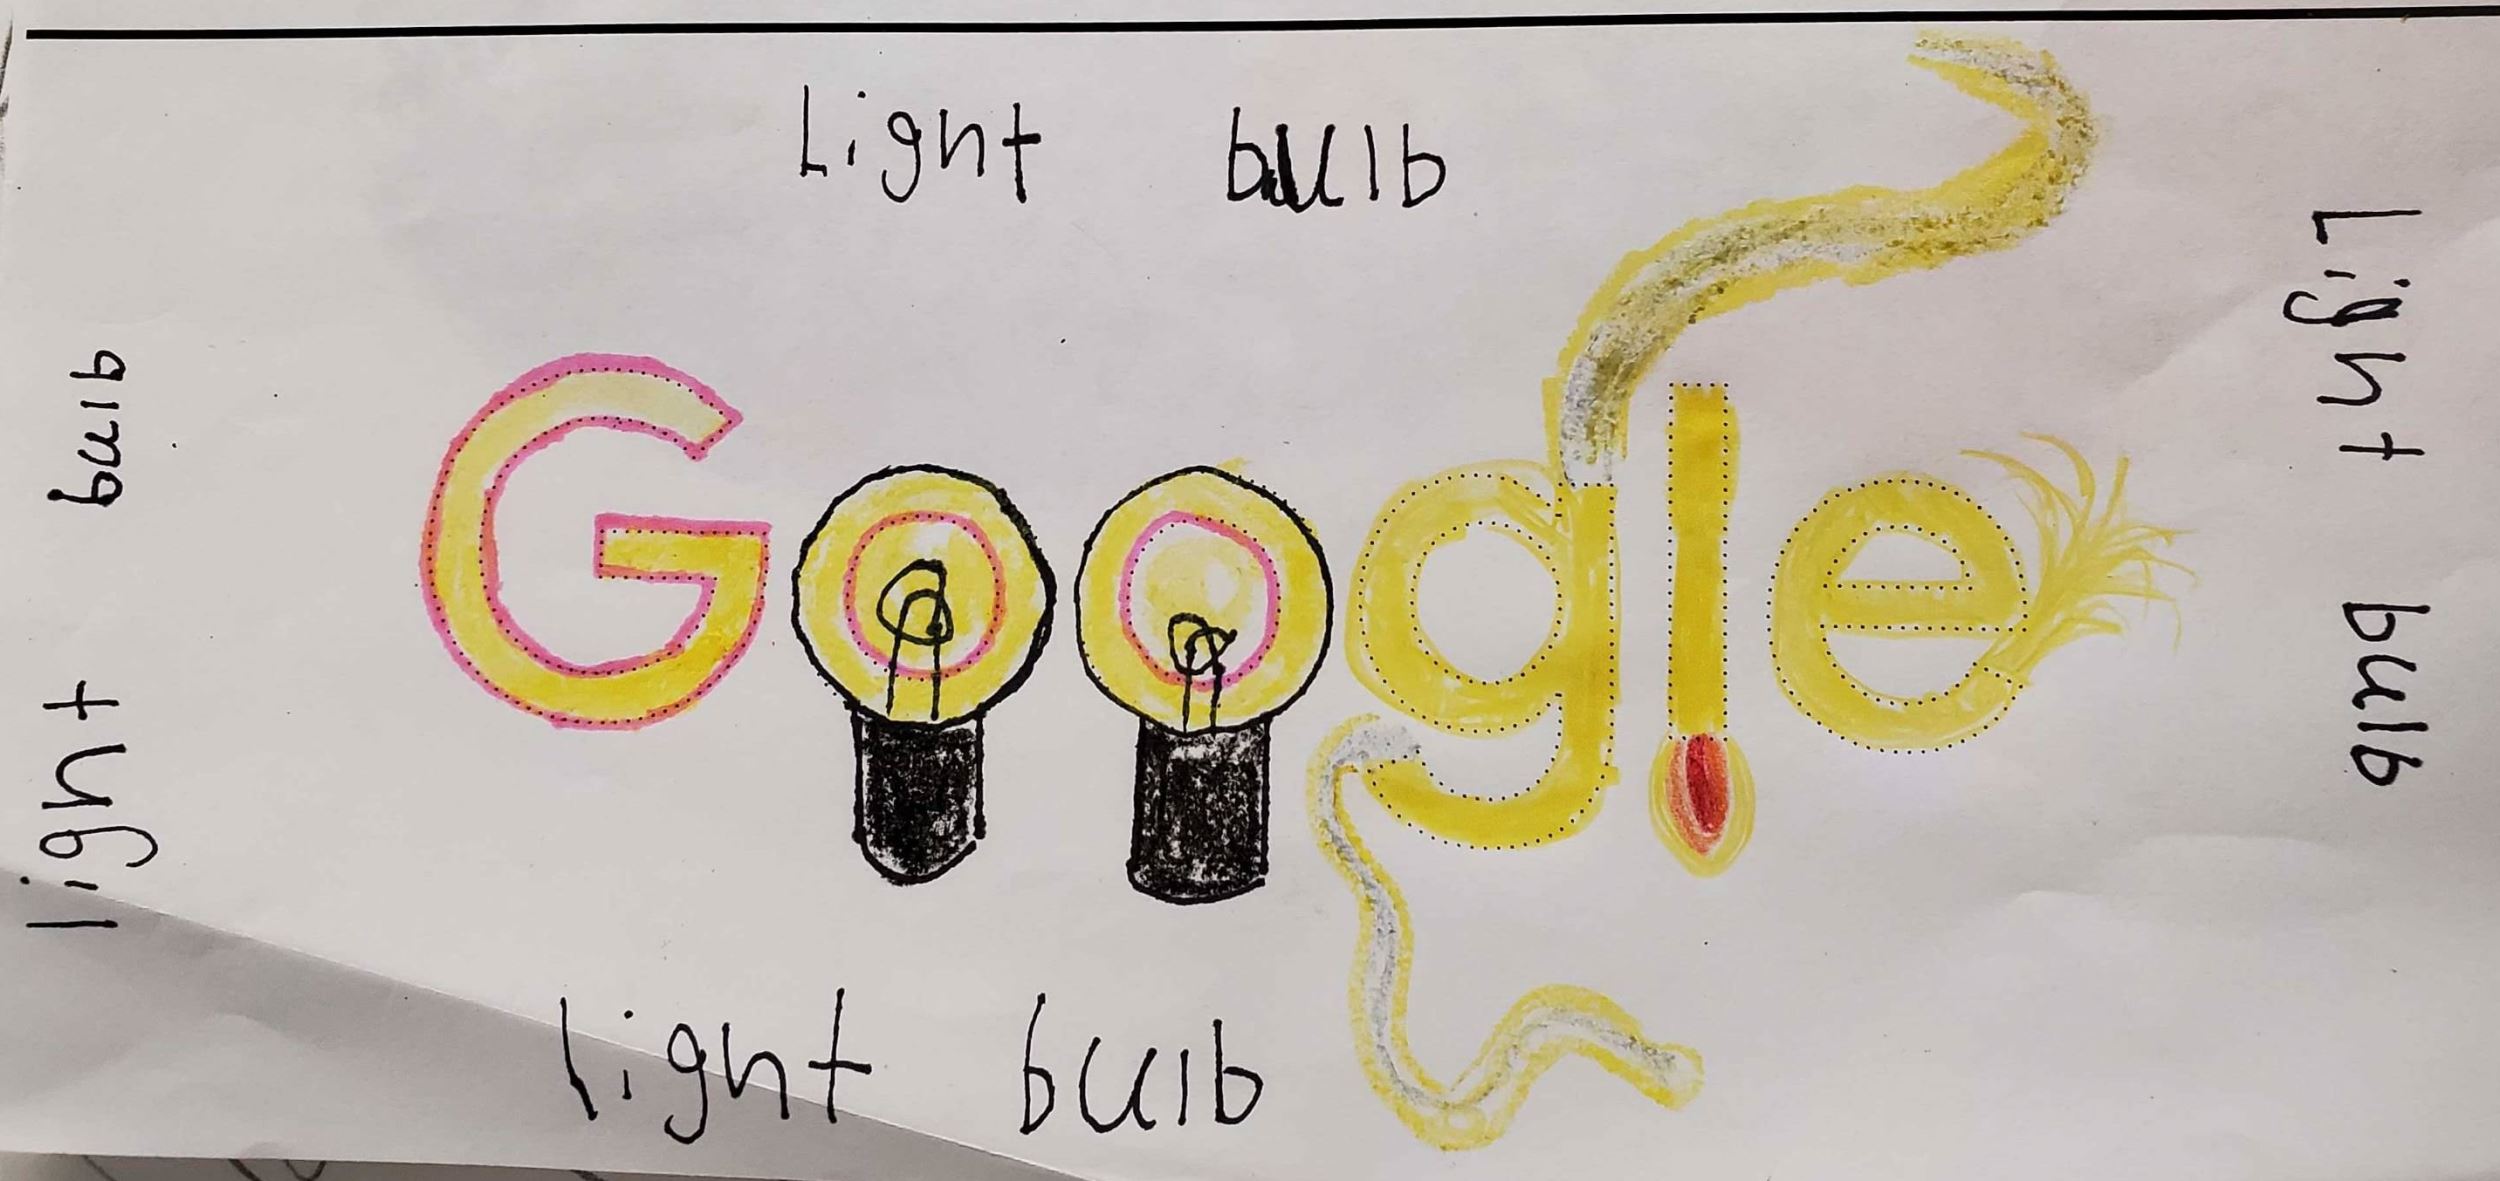 Light bulb
light bulb
Light bulb
Google
light bulb